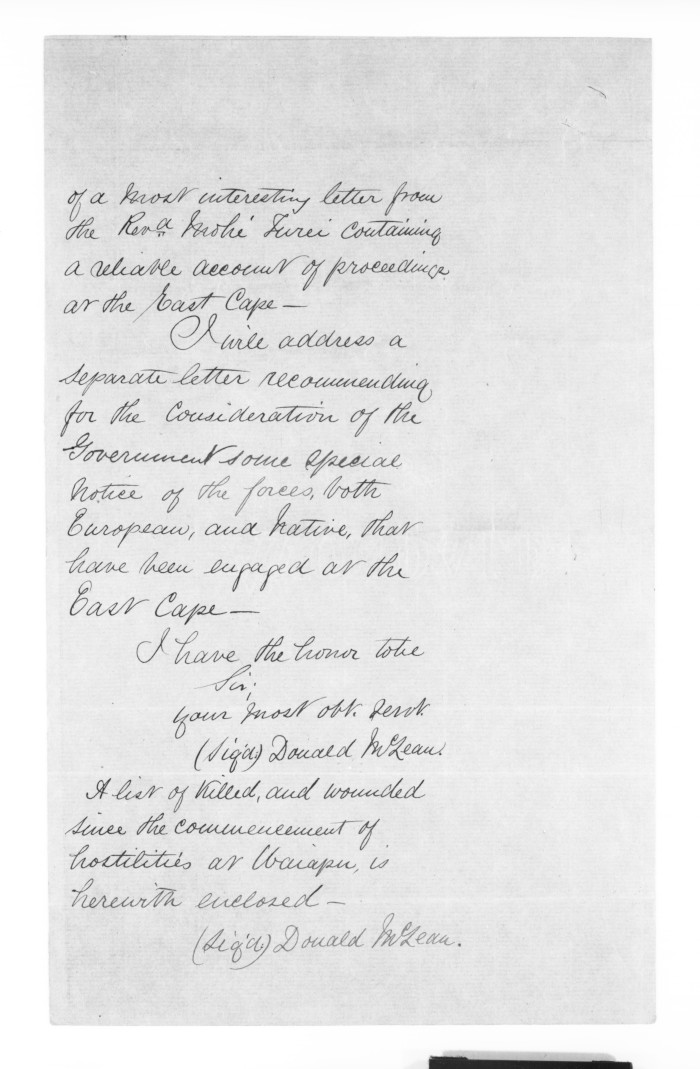 of a most interesting letter from
the Revd. Mohi Turei containing
a reliable account of proceedings
at the East Cape —
I will address a
separate letter recommending
for the consideration of the
Government some special
notice of the forces, both
European, and Native, that
have been engaged at the
East Cape —
I have the honor to be
Sir;
your most obt. servt.
(Sig'd) Donald McLean.
A list of killed, and wounded
since the commencement of
hostilities at Waiapu, is
herewith enclosed —
(Sig'd.) Donald McLean.